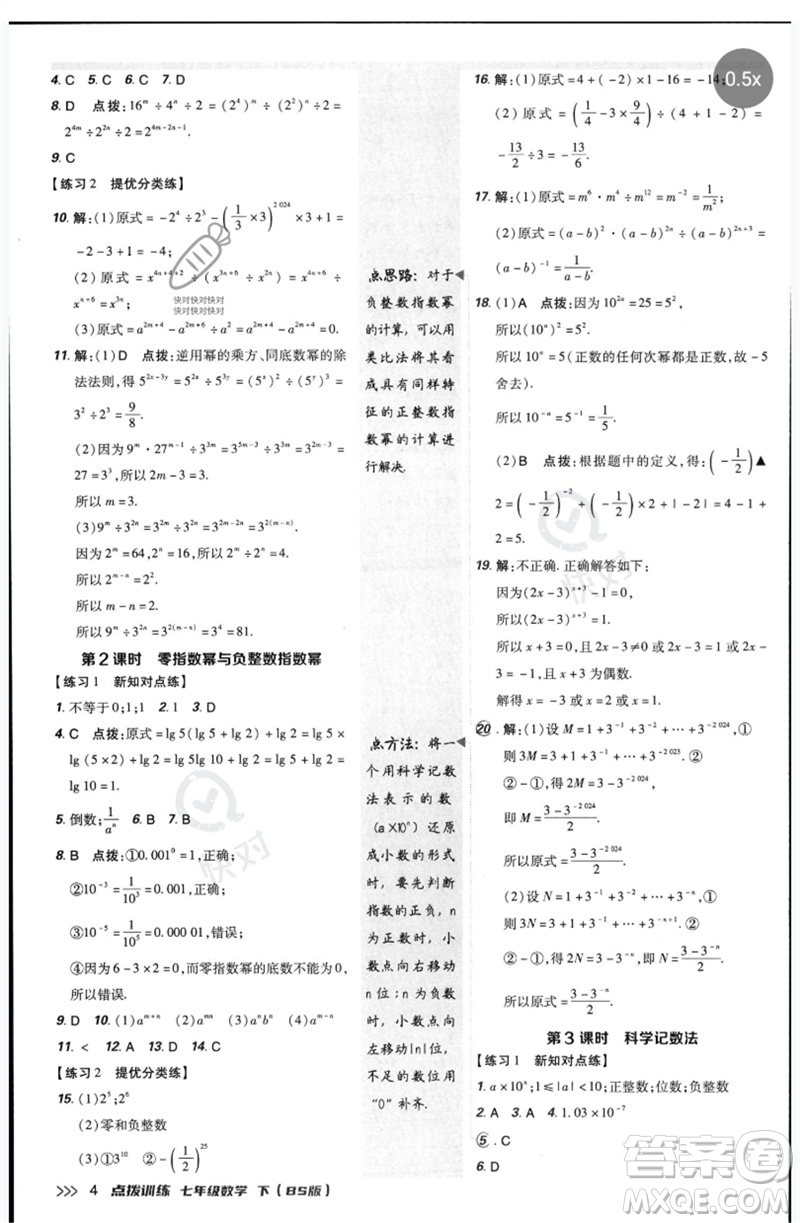 4. C 5. C 6. C 7. D
8. D 点拨: 16^m ÷ 4^n ÷ 2 = (2^4)^m ÷ (2^2)^n ÷ 2 =
2^{4m} ÷ 2^{2n} ÷ 2 = 2^{4m-2n-1}.
9. C
【练习2 提优分类练】
10. 解: (1)原式 = -2^4 ÷ 2^3 - (1/3 × 3)^{2 024} × 3 + 1 =
-2 - 3 + 1 = -4;
(2)原式 = x^{4n+4+2} ÷ x^{3n+6} = x^{4n+6} ÷ x^{3n+6} = x^n.
(3)原式 = a^{2m+4} ÷ a^{2m+4} = 0.
11. 解: (1)D 点拨: 逆用幂的乘方、同底数幂的除
法法则, 得 5^{2x-3y} = 5^{2x} ÷ 5^{3y} = (5^x)^2 ÷ (5^y)^3 =
3^2 ÷ 2^3 = 9/8.
(2)因为 9^m · 27^{m-1} ÷ 3^{2m} = 3^{2m} · 3^{3m-3} ÷ 3^{2m} =
27 = 3^3, 所以 3^{3m-3} = 3^3, 所以 3m - 3 = 3.
所以 m = 3.
(3)9^m ÷ 3^{2n} = 3^{2m} ÷ 3^{2n} = 3^{2m-2n} = 3^{2(m-n)}.
因为 2^m = 64, 2^n = 16, 所以 2^m ÷ 2^n = 64 ÷ 16 = 4.
所以 2^{m-n} = 2^2. 所以 m - n = 2.
所以 9^m ÷ 3^{2n} = 3^{2(m-n)} = 3^4 = 81.
第2课时 零指数幂与负整数指数幂
【练习1 新知对点练】
1. 不等于0;1;1 2. 1 3. D
4. C 点拨: 原式 = lg 5(lg 5 + lg 2) + lg 2 = lg 5 ×
lg (5×2) + lg 2 = lg 5 + lg 2 = lg (5×2) =
lg 10 = 1.
5. 倒数; 1/a^n 6. B 7. B
8. B 点拨: ①0.001^0 = 1, 正确;
②10^{-3} = 1/10^3 = 0.001, 正确;
③10^{-5} = 1/10^5 = 0.000 01, 错误;
④因为 6 - 3×2 = 0, 而零指数幂的底数不能为0,
所以错误.
9. D 10. (1)a^{m+n} (2)a^{mn} (3)a^n b^n (4)a^{m-n}
11. < 12. A 13. D 14. C
【练习2 提优分类练】
15. (1)2^5; 2^6
(2)零和负整数
(3)3^{10} ②-(1/2)^{25}
>>> 4 点拨训练 七年级数学 下 (BS版)
点思路: 对于
负整数指数幂
的计算, 可以用
类比法将其看
成具有同样特
征的正整数指
数幂的计算进
行解决.
点方法: 将一
个用科学记数
法表示的数
(a×10^n)还原
成小数的形式
时, 要先判断
指数的正负, n
为正数时, 小
数点向右移动
n位; n为负数
时, 小数点向
左移动|n|位,
不足的数位用
“0”补齐.
16. 解: (1)原式 = 4 + (-2) × 1 - 16 = -14;
(2)原式 = (1/4 - 3 × 9/4) ÷ (4 + 1 - 2) =
-13/2 ÷ 3 = -13/6.
17. 解: (1)原式 = m^6 · m^4 ÷ m^{12} = m^{-2} = 1/m^2;
(2)原式 = (a-b)^2 · (a-b)^{2n} ÷ (a-b)^{2n+3} =
(a-b)^{-1} = 1/(a-b).
18. (1)A 点拨: 因为 10^{2a} = 25 = 5^2,
所以 (10^a)^2 = 5^2.
所以 10^a = 5(正数的任何次幂都是正数, 故 -5
舍去).
所以 10^{-a} = 5^{-1} = 1/5.
(2)B 点拨: 根据题中的定义, 得: (-1/2)▲
2 = (-1/2)^{-2} + (-1/2) × 2 + |-2| = 4 - 1 +
2 = 5.
19. 解: 不正确. 正确解答如下:
因为 (2x-3)^{x+3} - 1 = 0,
所以 (2x-3)^{x+3} = 1,
所以 x+3 = 0, 且 2x-3≠0 或 2x-3 = 1 或
2x-3 = -1, 且 x+3 为偶数.
解得 x = -3 或 x = 2 或 x = 1.
20. 解: (1)设 M = 1 + 3^{-1} + 3^{-2} + … + 3^{-2 024}, ①
则 3M = 3 + 1 + 3^{-1} + … + 3^{-2 023}. ②
②-①, 得 2M = 3 - 3^{-2 024},
即 M = (3 - 3^{-2 024})/2.
所以原式 = (3 - 3^{-2 024})/2.
(2)设 N = 1 + 3^{-1} + 3^{-2} + … + 3^{-n}, ①
则 3N = 3 + 1 + 3^{-1} + … + 3^{-n+1}. ②
②-①, 得 2N = 3 - 3^{-n}, 即 N = (3 - 3^{-n})/2.
所以原式 = (3 - 3^{-n})/2.
第3课时 科学记数法
【练习1 新知对点练】
1. a×10^n; 1≤|a|<10; 正整数; 位数; 负整数
2. A 3. A 4. 1.03×10^{-7}
5. C
6. D
0.5x
快对快对快对
快对快对快对
快对
快对